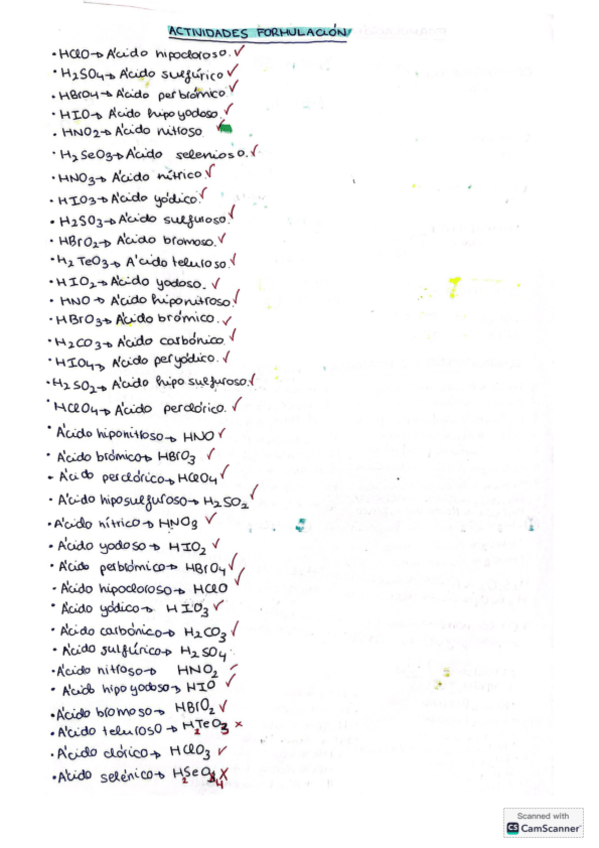 ACTIVIDADES FORMULACIÓN
• HClO→ Ácido hipocloroso. ✓
• H2SO4→ Ácido sulfúrico ✓
• HBrO4→ Ácido perbrómico ✓
• HIO→ Ácido hipoyodoso. ✓
• HNO2→ Ácido nitroso ✓
• H2SeO3→ Ácido selenioso. ✓
• HNO3→ Ácido nítrico ✓
• HIO3→ Ácido yódico. ✓
• H2SO3→ Ácido sulfuroso. ✓
• HBrO2→ Ácido bromoso. ✓
• H2TeO3→ Ácido teluroso. ✓
• HIO2→ Ácido yodoso. ✓
• HNO→ Ácido hiponitroso. ✓
• HBrO3→ Ácido brómico. ✓
• H2CO3→ Ácido carbónico. ✓
• HIO4→ Ácido peryódico. ✓
• H2SO2→ Ácido hiposulfuroso. ✓
• HClO4→ Ácido perclórico. ✓
• Ácido hiponitroso→ HNO ✓
• Ácido brómico→ HBrO3 ✓
• Ácido perclórico→ HClO4 ✓
• Ácido hiposulfuroso→ H2SO2 ✓
• Ácido nítrico→ HNO3 ✓
• Ácido yodoso→ HIO2 ✓
• Ácido perbrómico→ HBrO4 ✓
• Ácido hipocloroso→ HClO ✓
• Ácido yódico→ HIO3 ✓
• Ácido carbónico→ H2CO3 ✓
• Ácido sulfúrico→ H2SO4
• Ácido nitroso→ HNO2 ✓
• Ácido hipoyodoso→ HIO ✓
• Ácido bromoso→ HBrO2 ✓
• Ácido teluroso→ H2TeO3 ×
• Ácido clórico→ HClO3 ✓
• Ácido selénico→ H2SeO4 X
Scanned with
CS CamScanner